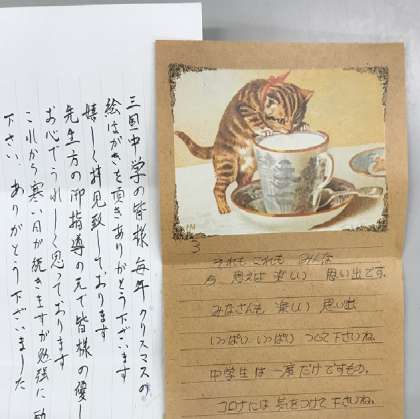 三国中学の皆様 毎年クリスマスの
絵はがきを頂きありがとうございます
嬉しく拝見致しております
先生方の御指導の元で皆様の優し
お心でうれしく思っております
これから寒い日が続きますが勉強に
下さい、ありがとうございました
3
それも これも みんな
今 思えば 楽しい 思い出です。
みなさんも 楽しい 思い出
いっぱい いっぱい つくって下さいね。
中学生は 一度だけですもの。
コロナには 気をつけて下さいね。